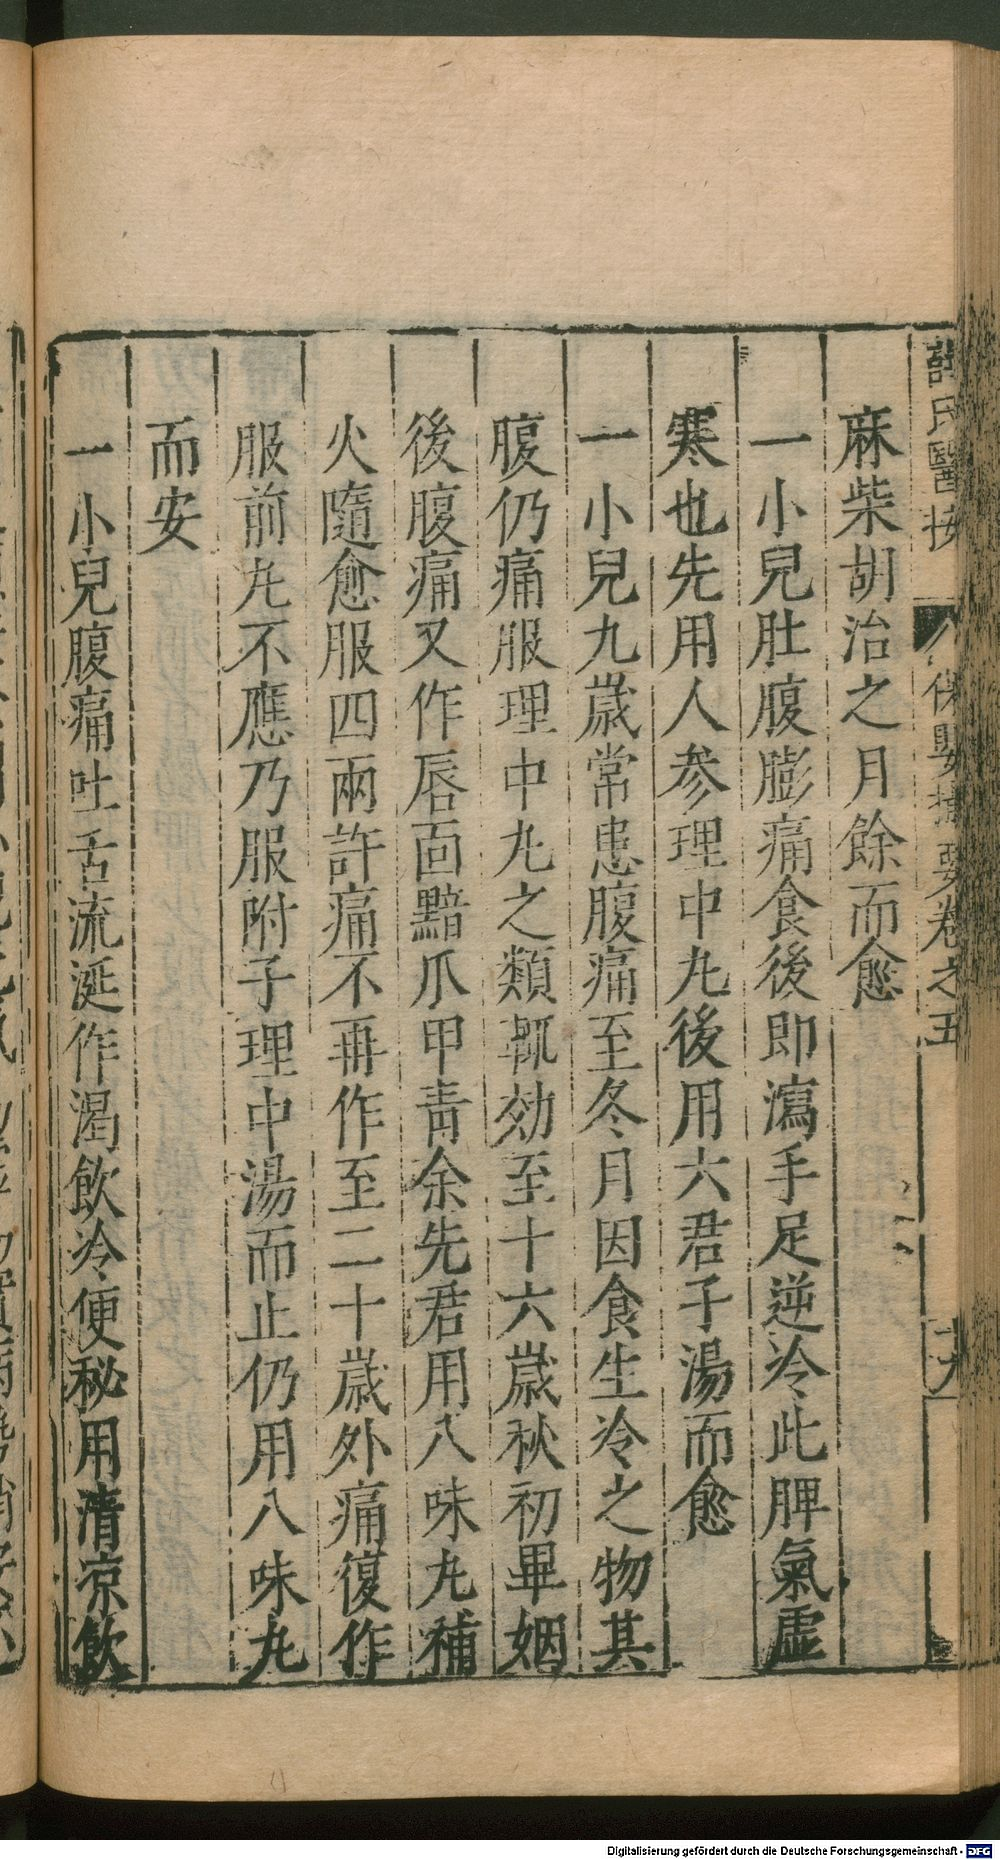 薛氏醫按 保嬰撮要卷之五 十九
麻柴胡治之月餘而愈
一小兒肚腹膨痛食後即瀉手足逆冷此脾氣虛
寒也先用人参理中丸後用六君子湯而愈
一小兒九歲常患腹痛至冬月因食生冷之物其
腹仍痛服理中丸之類輒効至十六歲秋初畢姻
後腹痛又作唇面黯爪甲青余先君用八味丸補
火隨愈服四兩許痛不再作至二十歲外痛復作
服前丸不應乃服附子理中湯而止仍用八味丸
而安
一小兒腹痛吐舌流涎作渴飲冷便秘用清凉飲
Digitalisierung gefördert durch die Deutsche Forschungsgemeinschaft - DFG